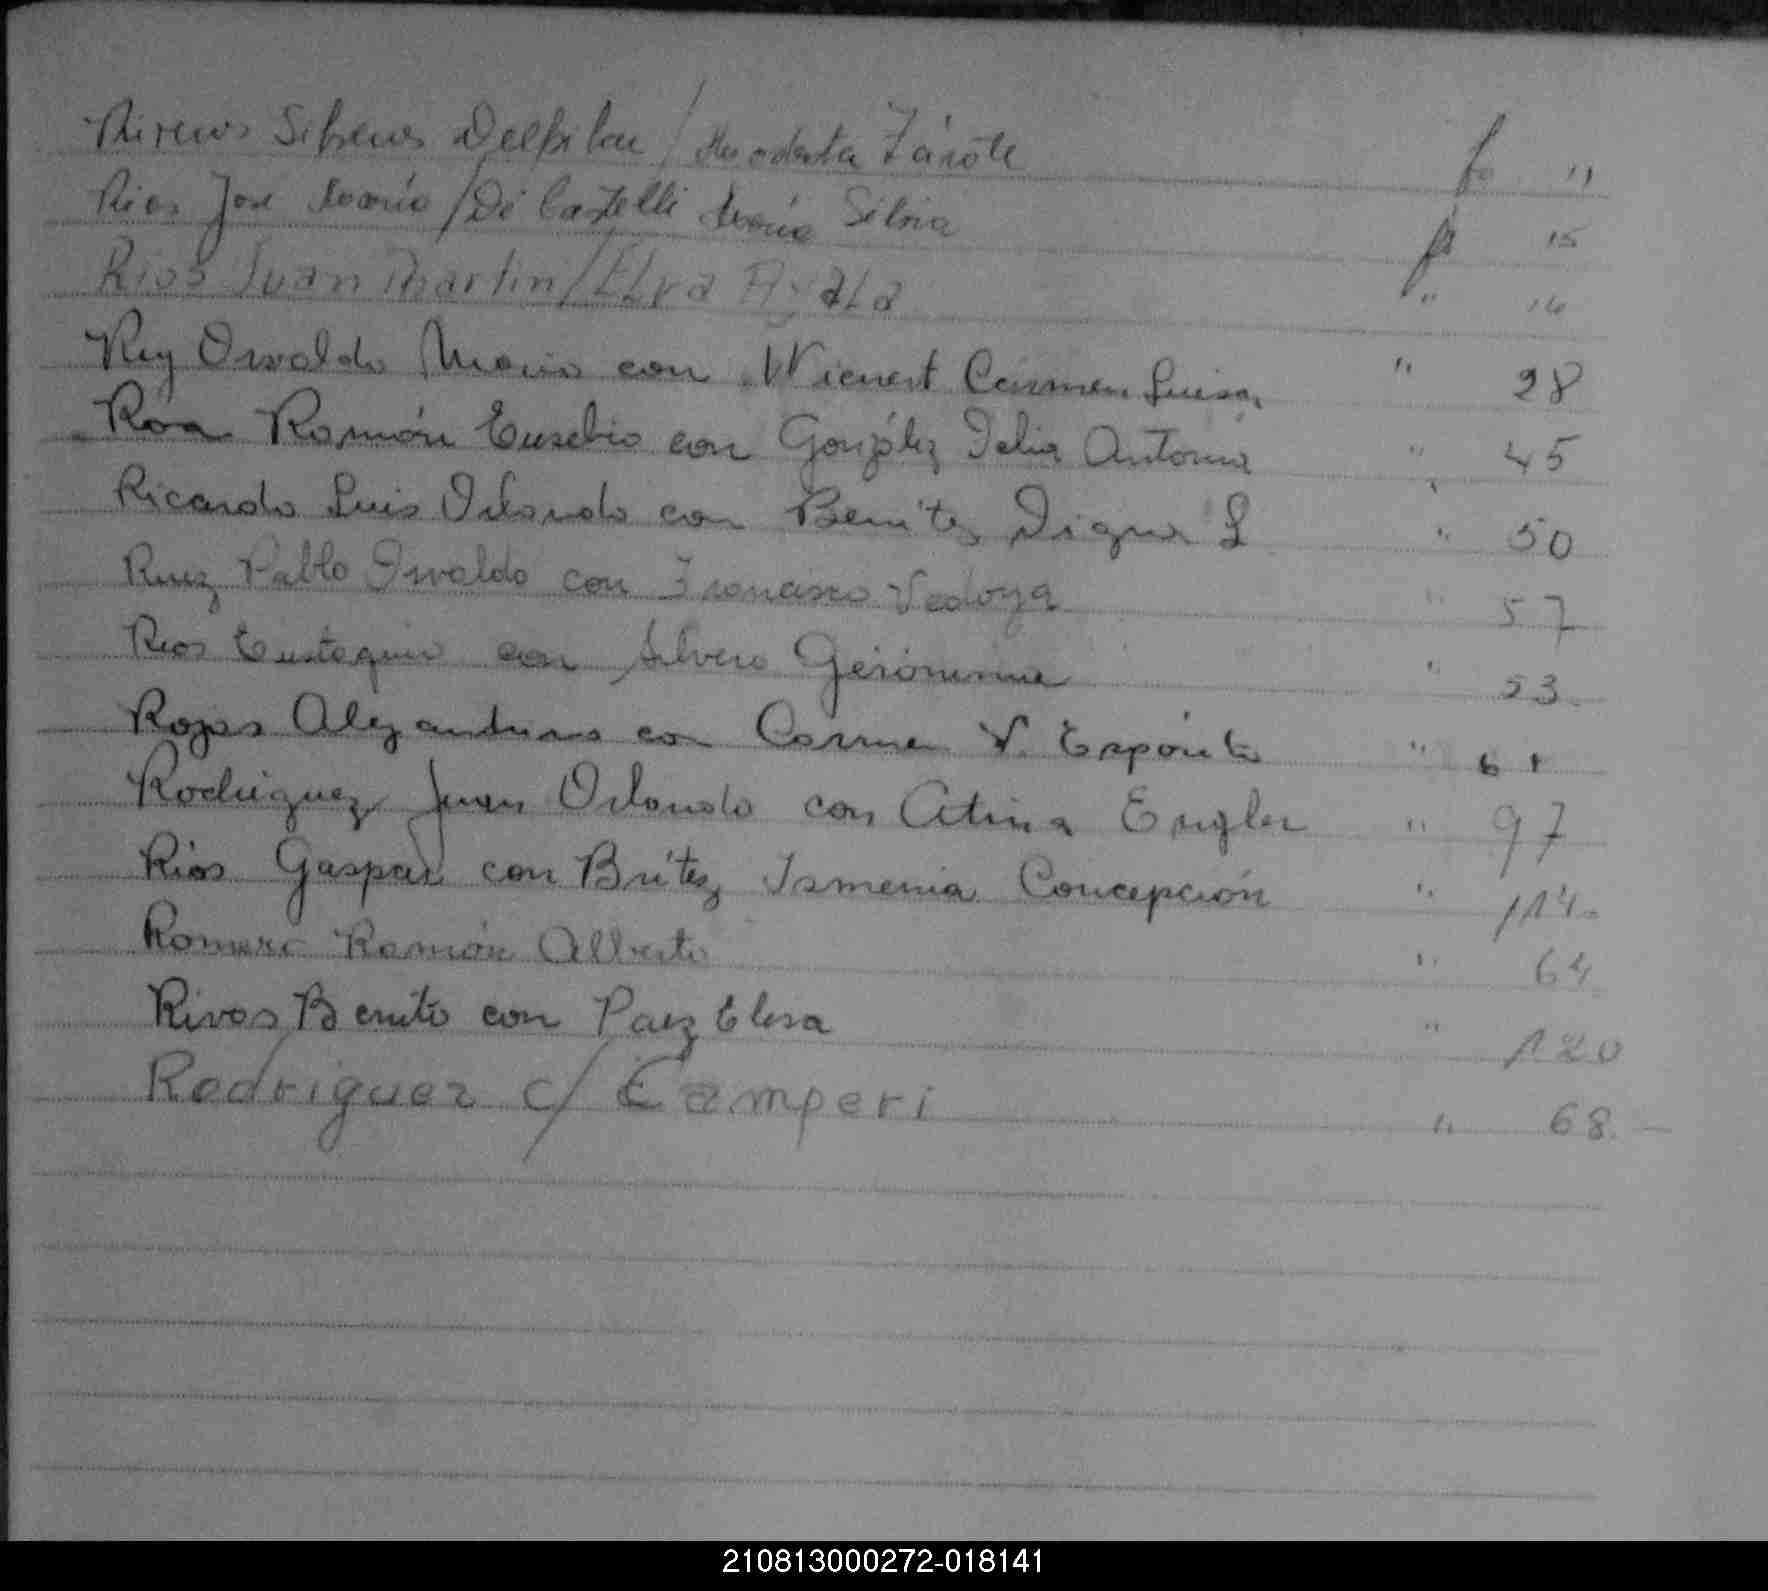 Delfilu / Zárate fo 11
Rios Jose María / De Castelli María Silvia fo 15
Rios Juan Martin / Elva Ayala " 16
Rey Osvaldo Mario con Wienert Carmen Luisa " 28
Róa Ramón Eusebio con González Delia Antonia " 45
Ricardo Luis Orlando con Benitez Digna L " 50
Ruiz Pablo Osvaldo con Francisco Vedoya " 57
Rios Eustaquio con Silvero Gerónima " 53
Rojas Alejandrino con Carmen V. Espósito " 61
Rodriguez Juan Orlando con Atina Engler " 97
Ríos Gaspar con Brítez Ismenia Concepción " 114.
Romero Ramón Alberto " 64
Rivas Benito con Paez Elisa " 120
Rodriguez c/ Camperi " 68. —
210813000272-018141